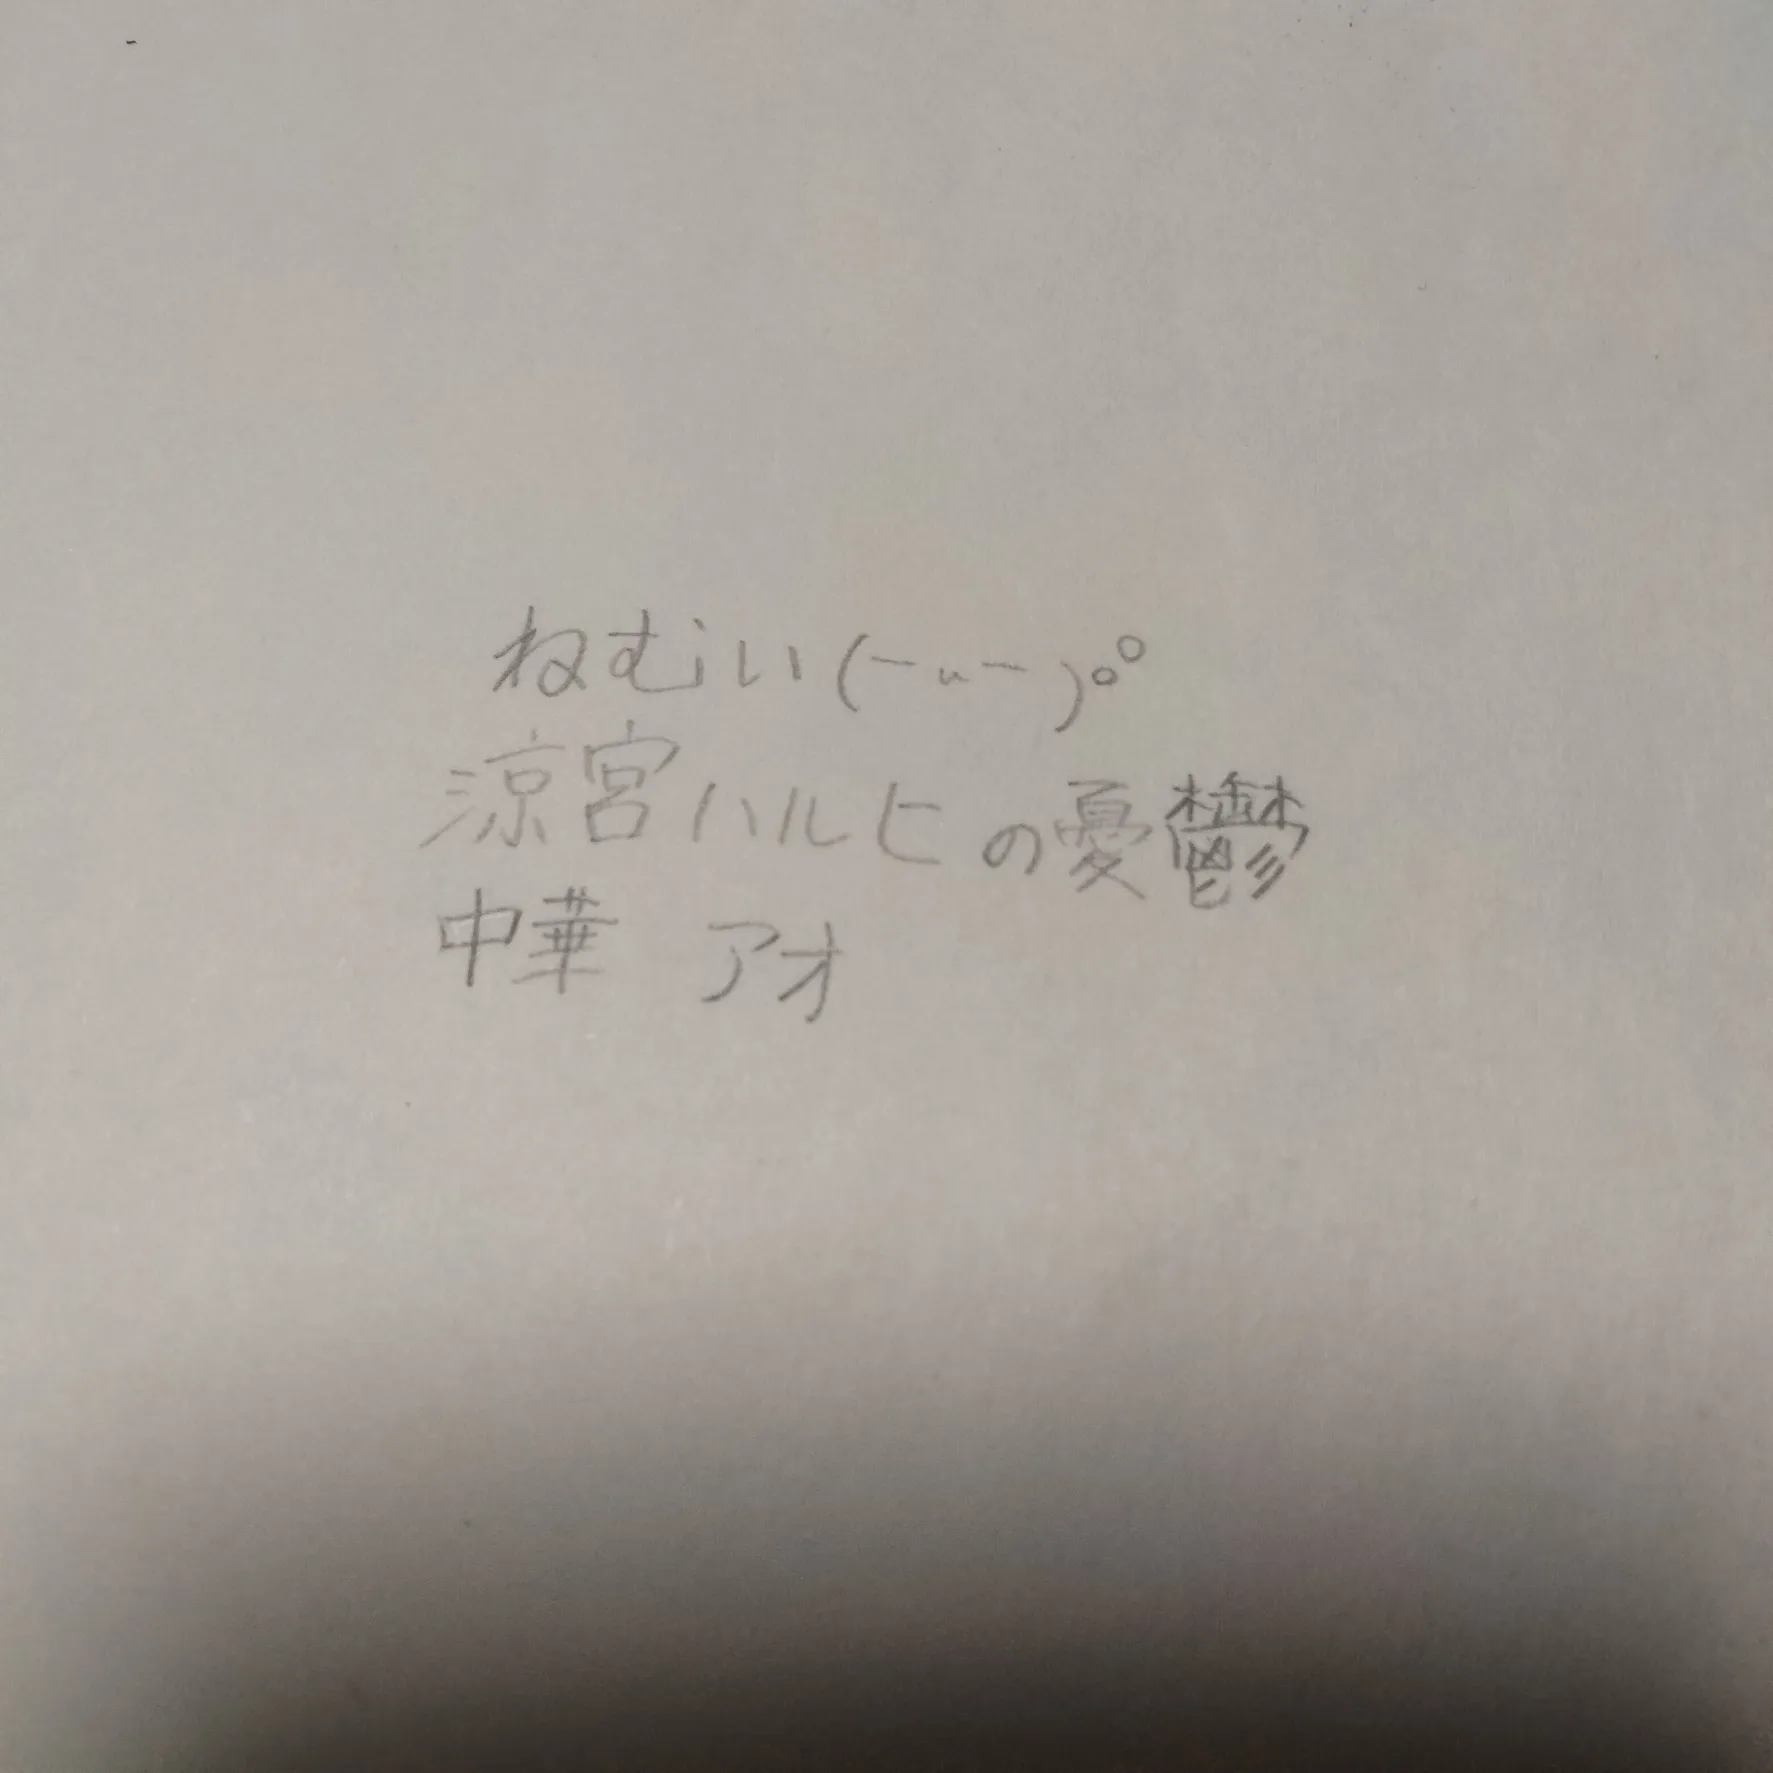 ねむい(ー_ー)。°
涼宮ハルヒの憂鬱
中華 アオ